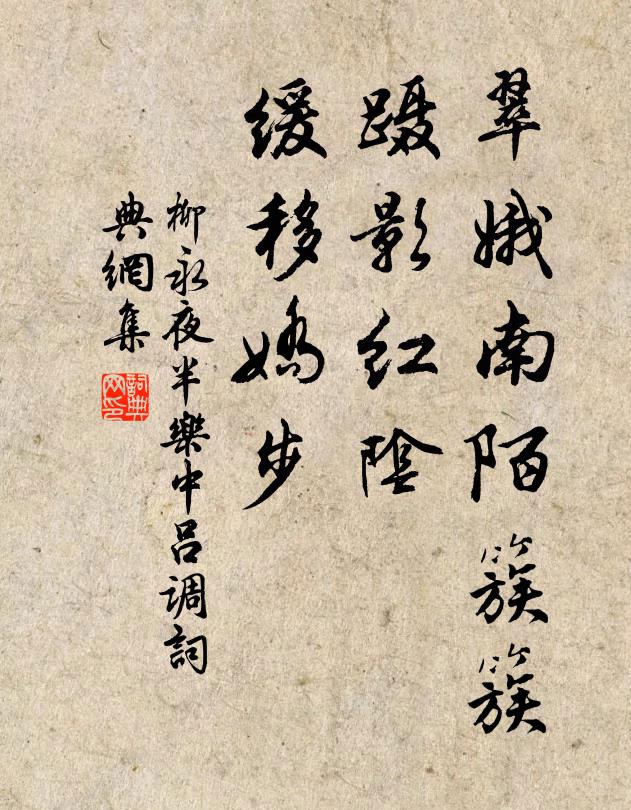 翠娥南陌簇簇
蹑影红陰
缓移嬌步
柳永夜半樂中吕调詞
典網集
詞典網印